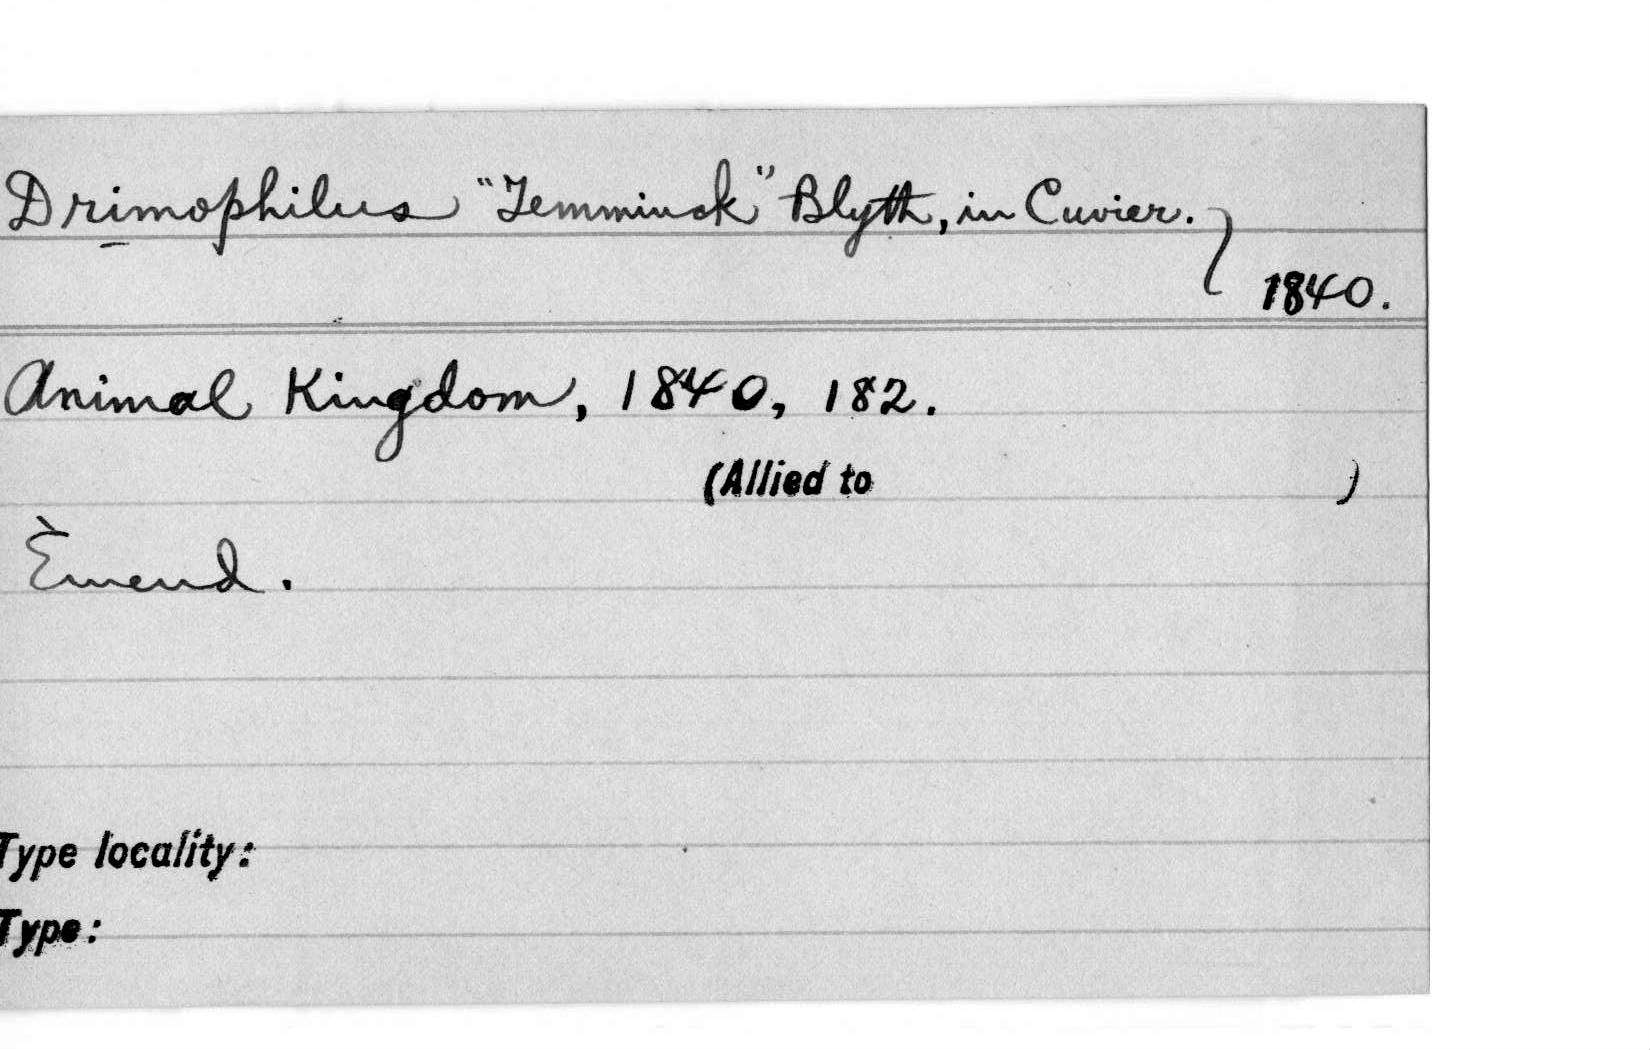 Drimophilus "Temminck" Blyth, in Cuvier. }
1840.
Animal Kingdom, 1840, 182.
(Allied to )
Emend.
Type locality:
Type: